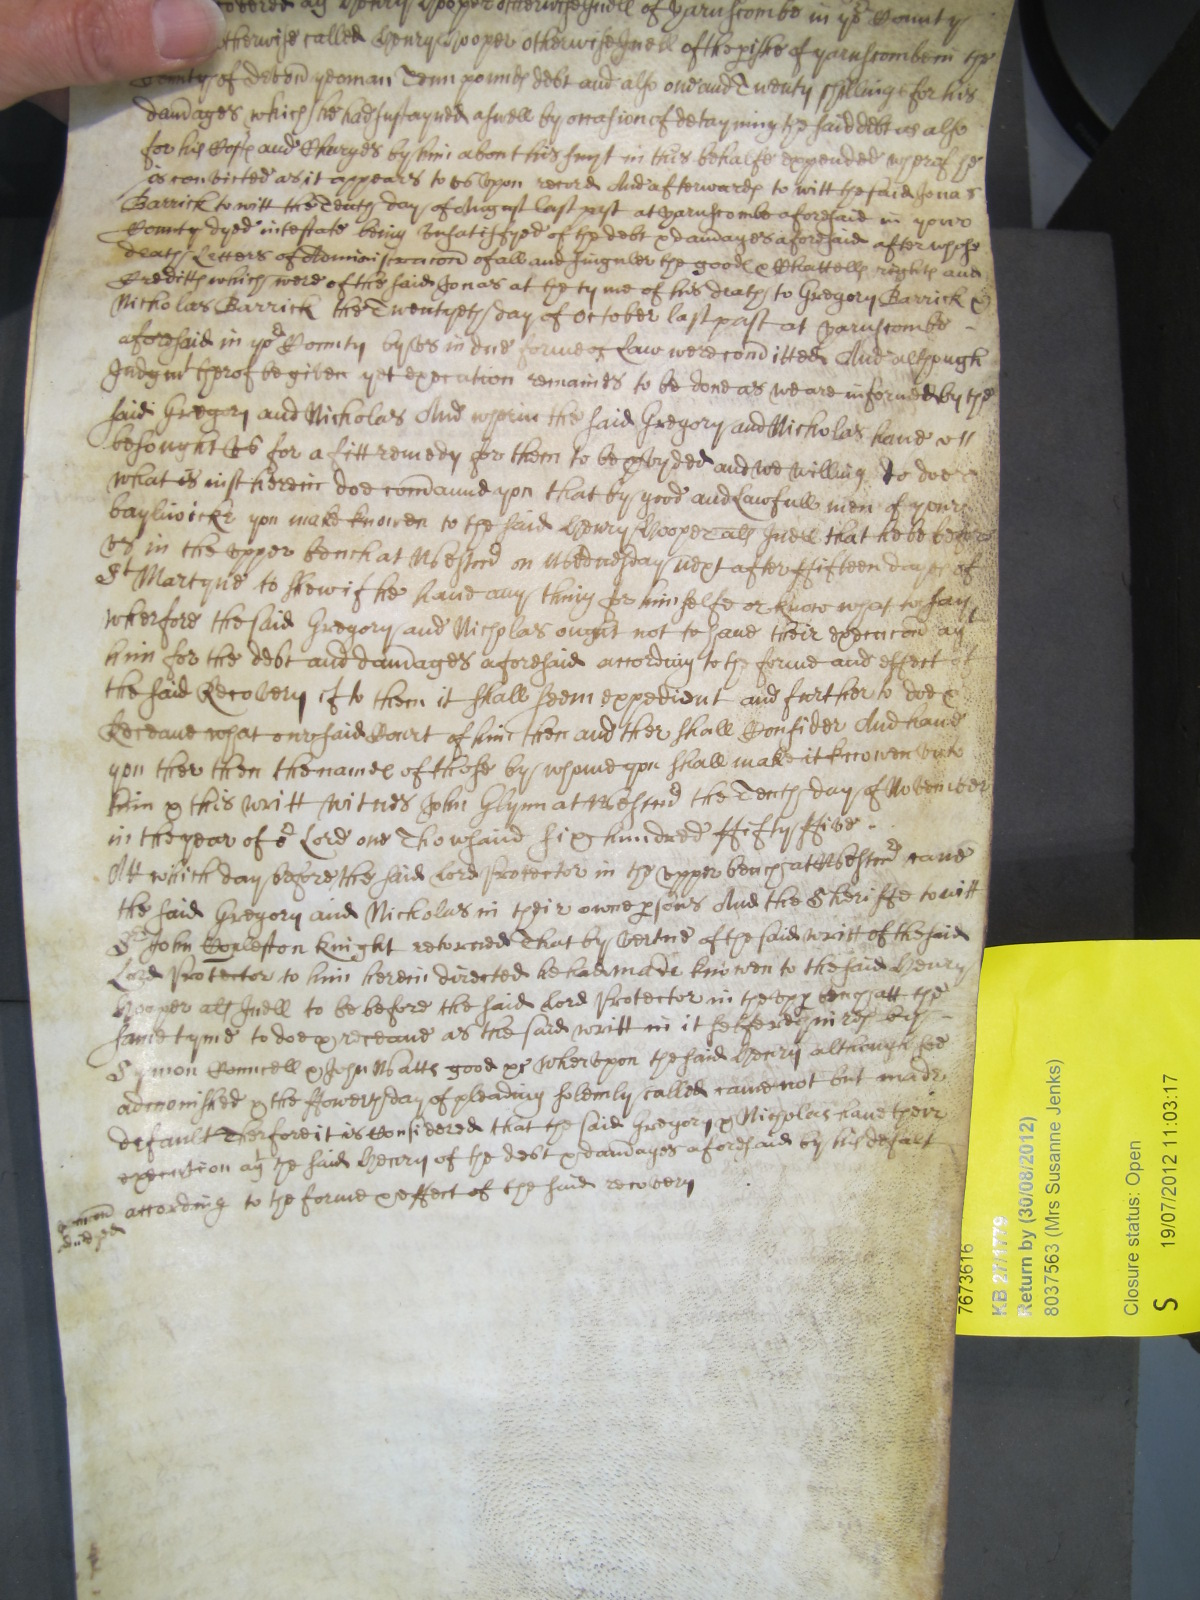 Hooper otherwise Juell of Yarnscombe in yor County
otherwise called Henry Hooper otherwise Juell of the pishe of yarnscombe in the
County of Devon yeoman Tenn pounds debt and also one and Twenty shillings for his
damages which he had sustayned aswell by occasion of detayning the said debt as also
for his Costs and Charges by him about his suyt in this behalfe expended wherof he
is convicted as it appears to us upon record And afterwards to witt the said Jonas
Barrick to witt the Tenth day of August last past at yarnscombe aforesaid in your
County dyed intestate being unsatisfyed of the debt & damages aforesaid after whose
death Letters of Administracon of all and singuler the goods & Chattells rights and
Creditts which were of the said Jonas at the tyme of his death to Gregory Barrick &
Nicholas Barrick the Twentyeth day of October last past at yarnscombe
aforesaid in yor County by us in due forme of Law were comitted And although
Judgmt therof be given yet execution remaines to be done as we are informed by the
said Gregory and Nicholas And wherin the said Gregory and Nicholas have
besought us for a fitt remedy for them to be pvyded and we willing to doe
what is iust herein doe comaund you that by good and Lawfull men of your
baylwicke you make knowen to the said Henry Hooper als Juell that he be before
us in the upper bench at Westmr on Wednesday next after ffifteen dayes of
St Martyne to shew if he have any thing for himselfe or know what to say
wherfore the said Gregory and Nicholas ought not to have their execucon agt
him for the debt and damages aforesaid according to the forme and effect of
the said Recovery if to them it shall seem expedient and further to doe &
Receave what our said Court of him then and ther shall Consider And have
you ther then the names of those by whome you shall make it knowen unto
him & this writt Witnes John Glynn at Westmr the Tenth day of November
in the year of or Lord one Thowsand six hundred ffifty ffive
Att which day before the said Lord Protector in the upper bench at Westmr came
the said Gregory and Nicholas in their owne psons And the Sheriffe to witt
Sr John Copleston knight retorned That by vertue of the said writt of the said
Lord Protector to him herein directed he had made knowen to the said Henry
Hooper als Juell to be before the said Lord Protector in the upp bench att the
same tyme to doe & receave as the said writt in it selfe requireth by
Symon Councell & John Watts good &c Wherupon the said Henry although
admonished & the ffowerth day of pleading solemly called came not but made
default Therfore it is Considered that the said Gregory & Nicholas have their
execution agt the said Henry of the debt & damages aforesaid by his defalt
according to the forme & effect of the said recovery
7673616
KB 27/1779
Return by (30/08/2012)
8037563 (Mrs Susanne Jenks)
Closure status: Open
S 19/07/2012 11:03:17